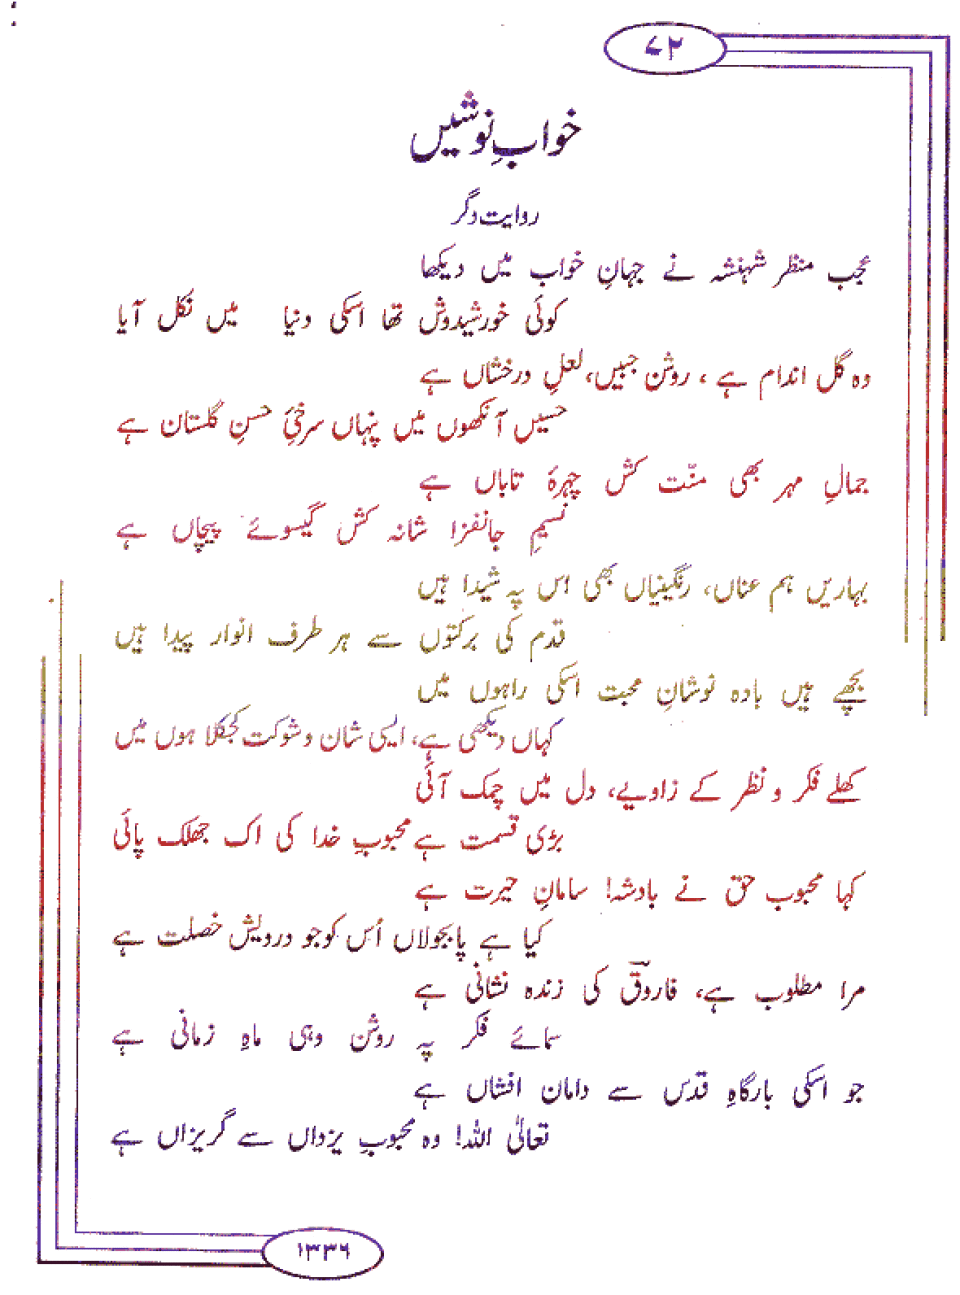 ۷۲
خوابِ نوشیں
روایت دگر
عجب منظر شہنشہ نے جہانِ خواب میں دیکھا
کوئی خورشیدوش تھا اسکی دنیا میں نکل آیا
وہ گل اندام ہے ، روشن جبیں، لعلِ درخشاں ہے
حسیں آنکھوں میں پنہاں سرخیٔ حسنِ گلستان ہے
جمالِ مہر بھی منّت کش چہرۂ تاباں ہے
نسیمِ جانفزا شانہ کش گیسوئے پیچاں ہے
بہاریں ہم عناں، رنگینیاں بھی اس پہ شیدا ہیں
قدم کی برکتوں سے ہر طرف انوار پیدا ہیں
بچھے ہیں بادہ نوشانِ محبت اسکی راہوں میں
کہاں دیکھی ہے، ایسی شان و شوکت کجکلا ہوں میں
کھلے فکر و نظر کے زاویے، دل میں چمک آئی
بڑی قسمت ہے محبوبِ خدا کی اک جھلک پائی
کہا محبوب حق نے بادشہ! سامانِ حیرت ہے
کیا ہے پابجولاں اُس کو جو درویش خصلت ہے
مرا مطلوب ہے، فاروقؓ کی زندہ نشانی ہے
سمائے فکر پہ روشن وہی ماہِ زمانی ہے
جو اسکی بارگاہِ قدس سے دامان افشاں ہے
تعالیٰ اللہ! وہ محبوبِ یزداں سے گریزاں ہے
۱۳۳۶